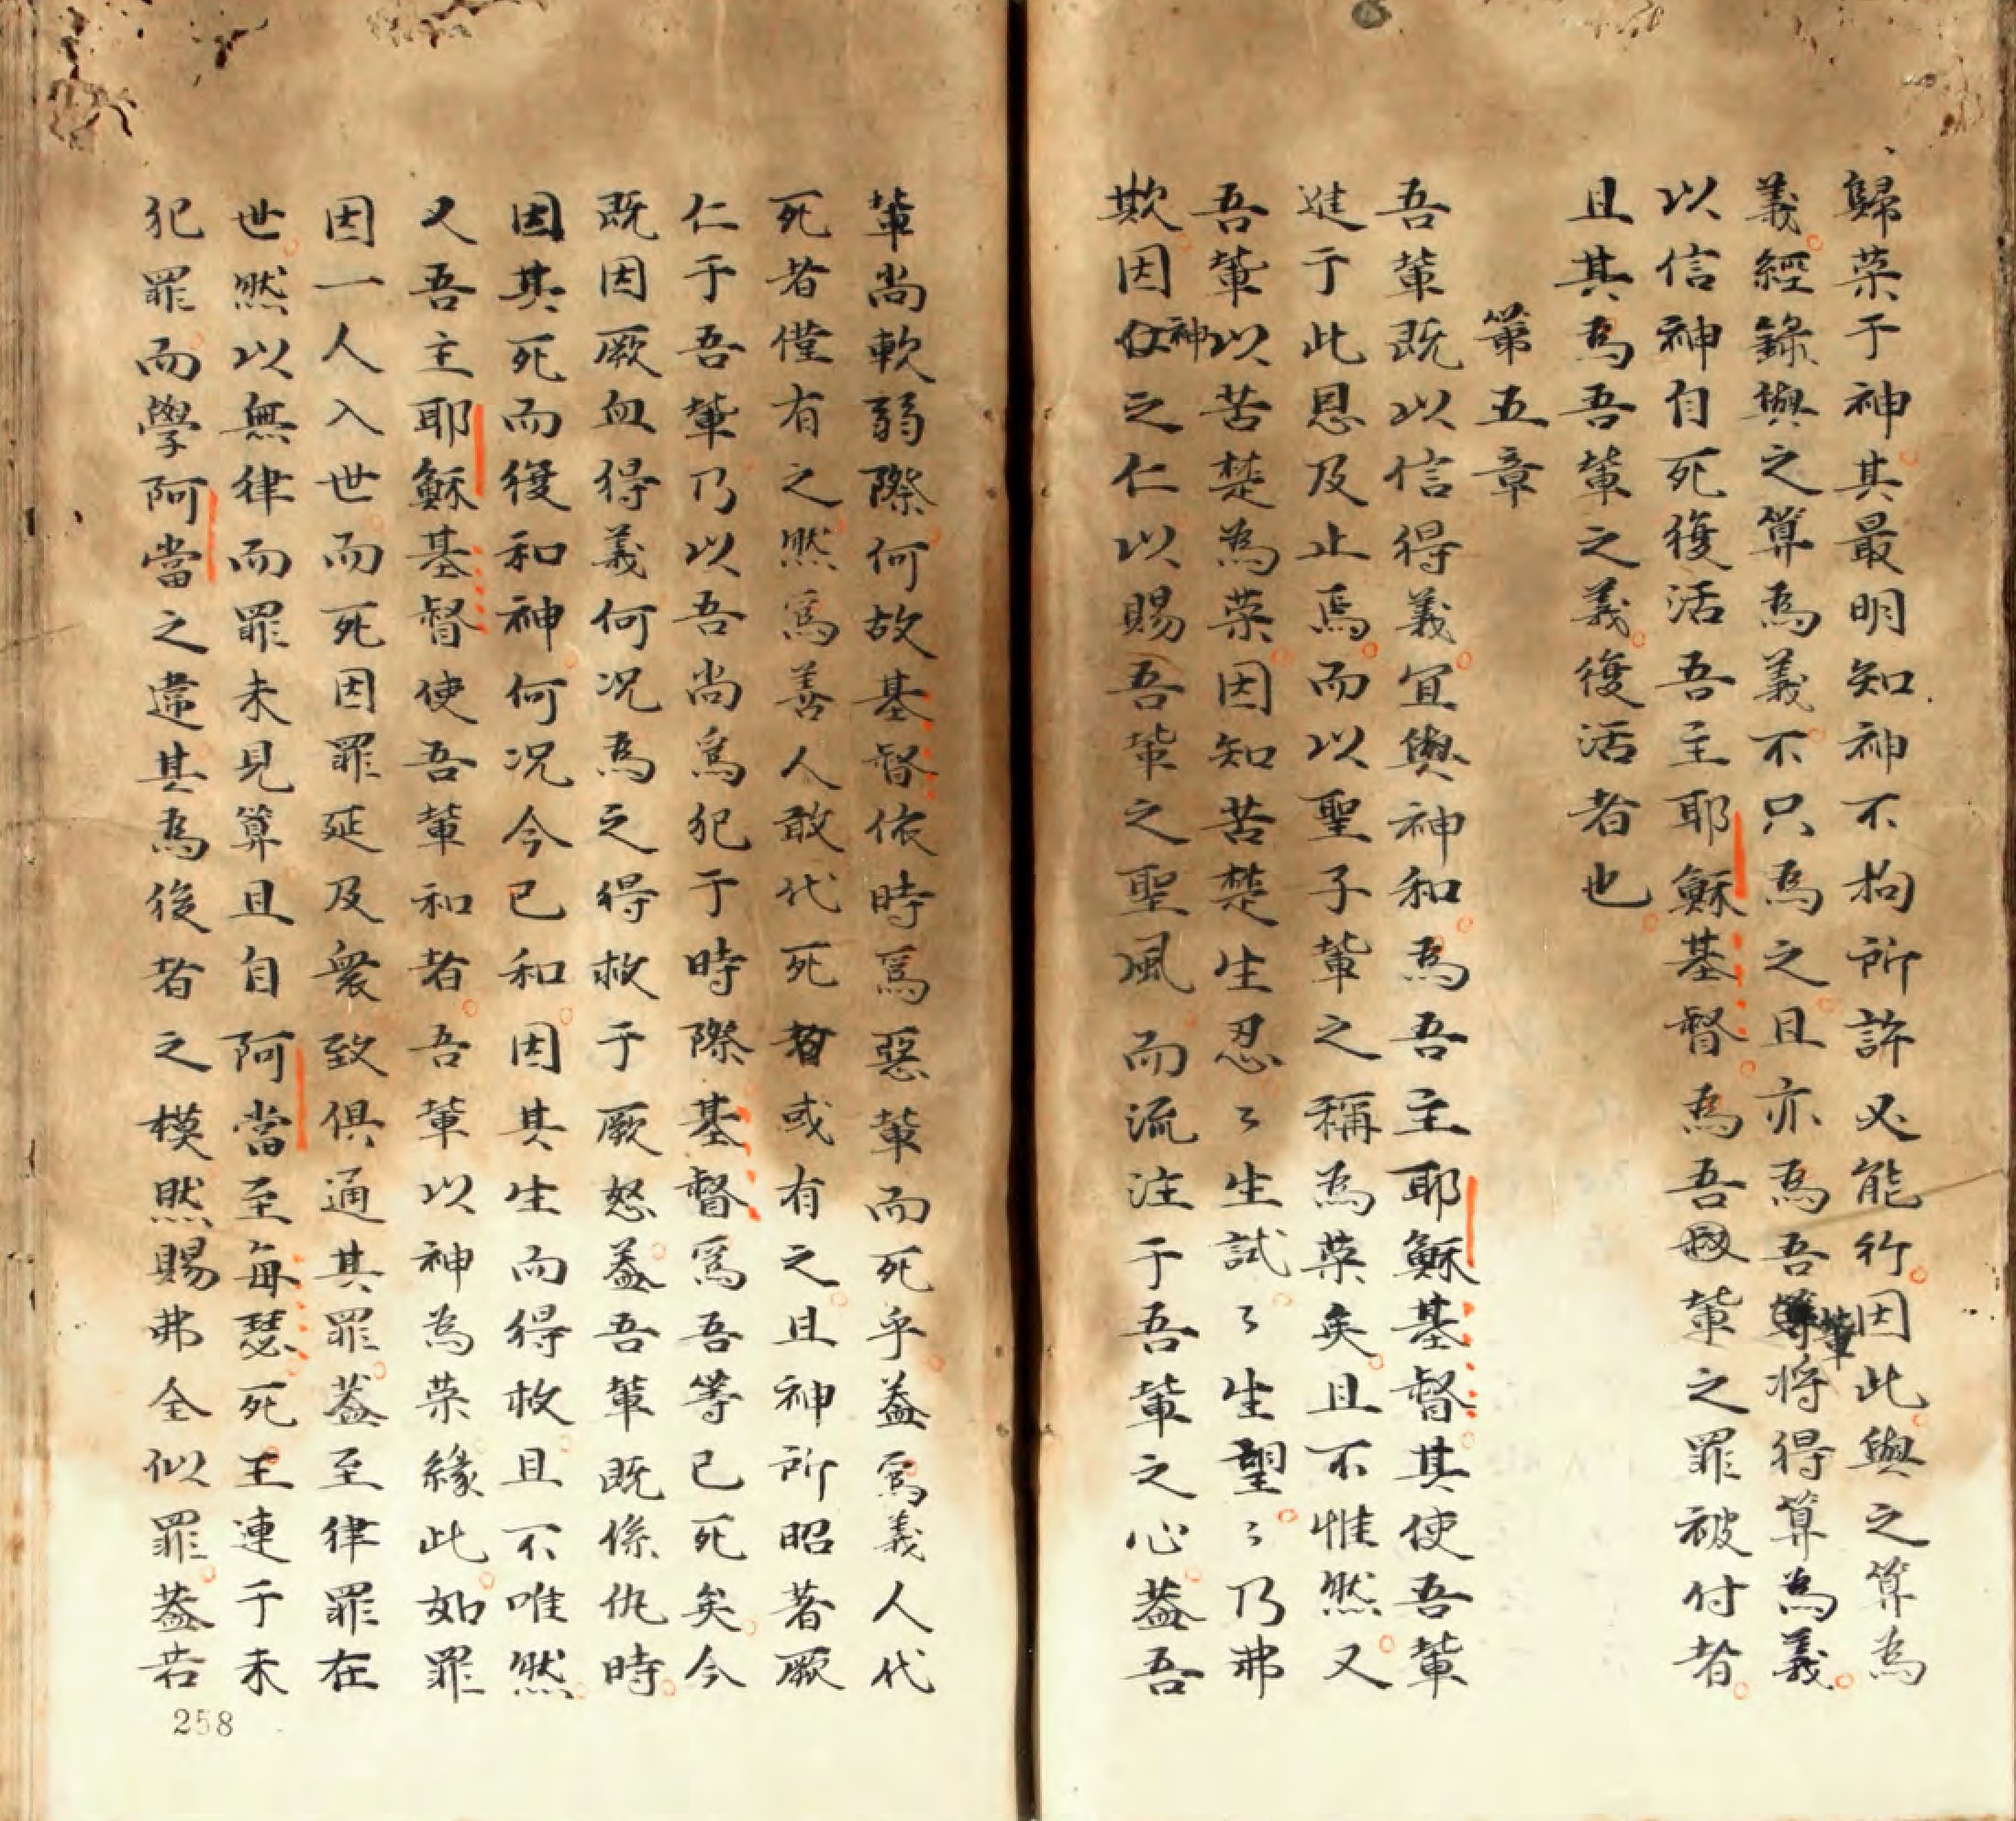 歸荣于神其最明知神不拘所許必能行因此與之算為
義經錄與之算為義不只為之且亦為吾輩將得算為義
以信神自死復活吾主耶穌基督為吾輩之罪被付者
且其為吾輩之義復活者也
第五章
吾輩既以信得義宜與神和為吾主耶穌基督其使吾輩
進于此恩及止焉而以聖子輩之稱為荣矣且不惟然又
吾輩以苦楚為荣因知苦楚生忍〻生試〻生望〻乃弗
欺因神之仁以賜吾輩之聖風而流注于吾輩之心蓋吾
輩尚軟弱際何故基督依時爲惡輩而死乎蓋爲義人代
死者僅有之然爲善人敢代死者或有之且神所昭著厥
仁于吾輩乃以吾尚爲犯于時際基督爲吾等已死矣今
既因厥血得義何况為之得救于厥怒蓋吾輩既係仇時
因其死而復和神何况今已和因其生而得救且不唯然
又吾主耶穌基督使吾輩和者吾輩以神為荣緣此如罪
因一人入世而死因罪延及衆致俱通其罪蓋至律罪在
世然以無律而罪未見算且自阿當至每瑟死王連于未
犯罪而學阿當之違其為後者之模然賜弗全似罪蓋若
258